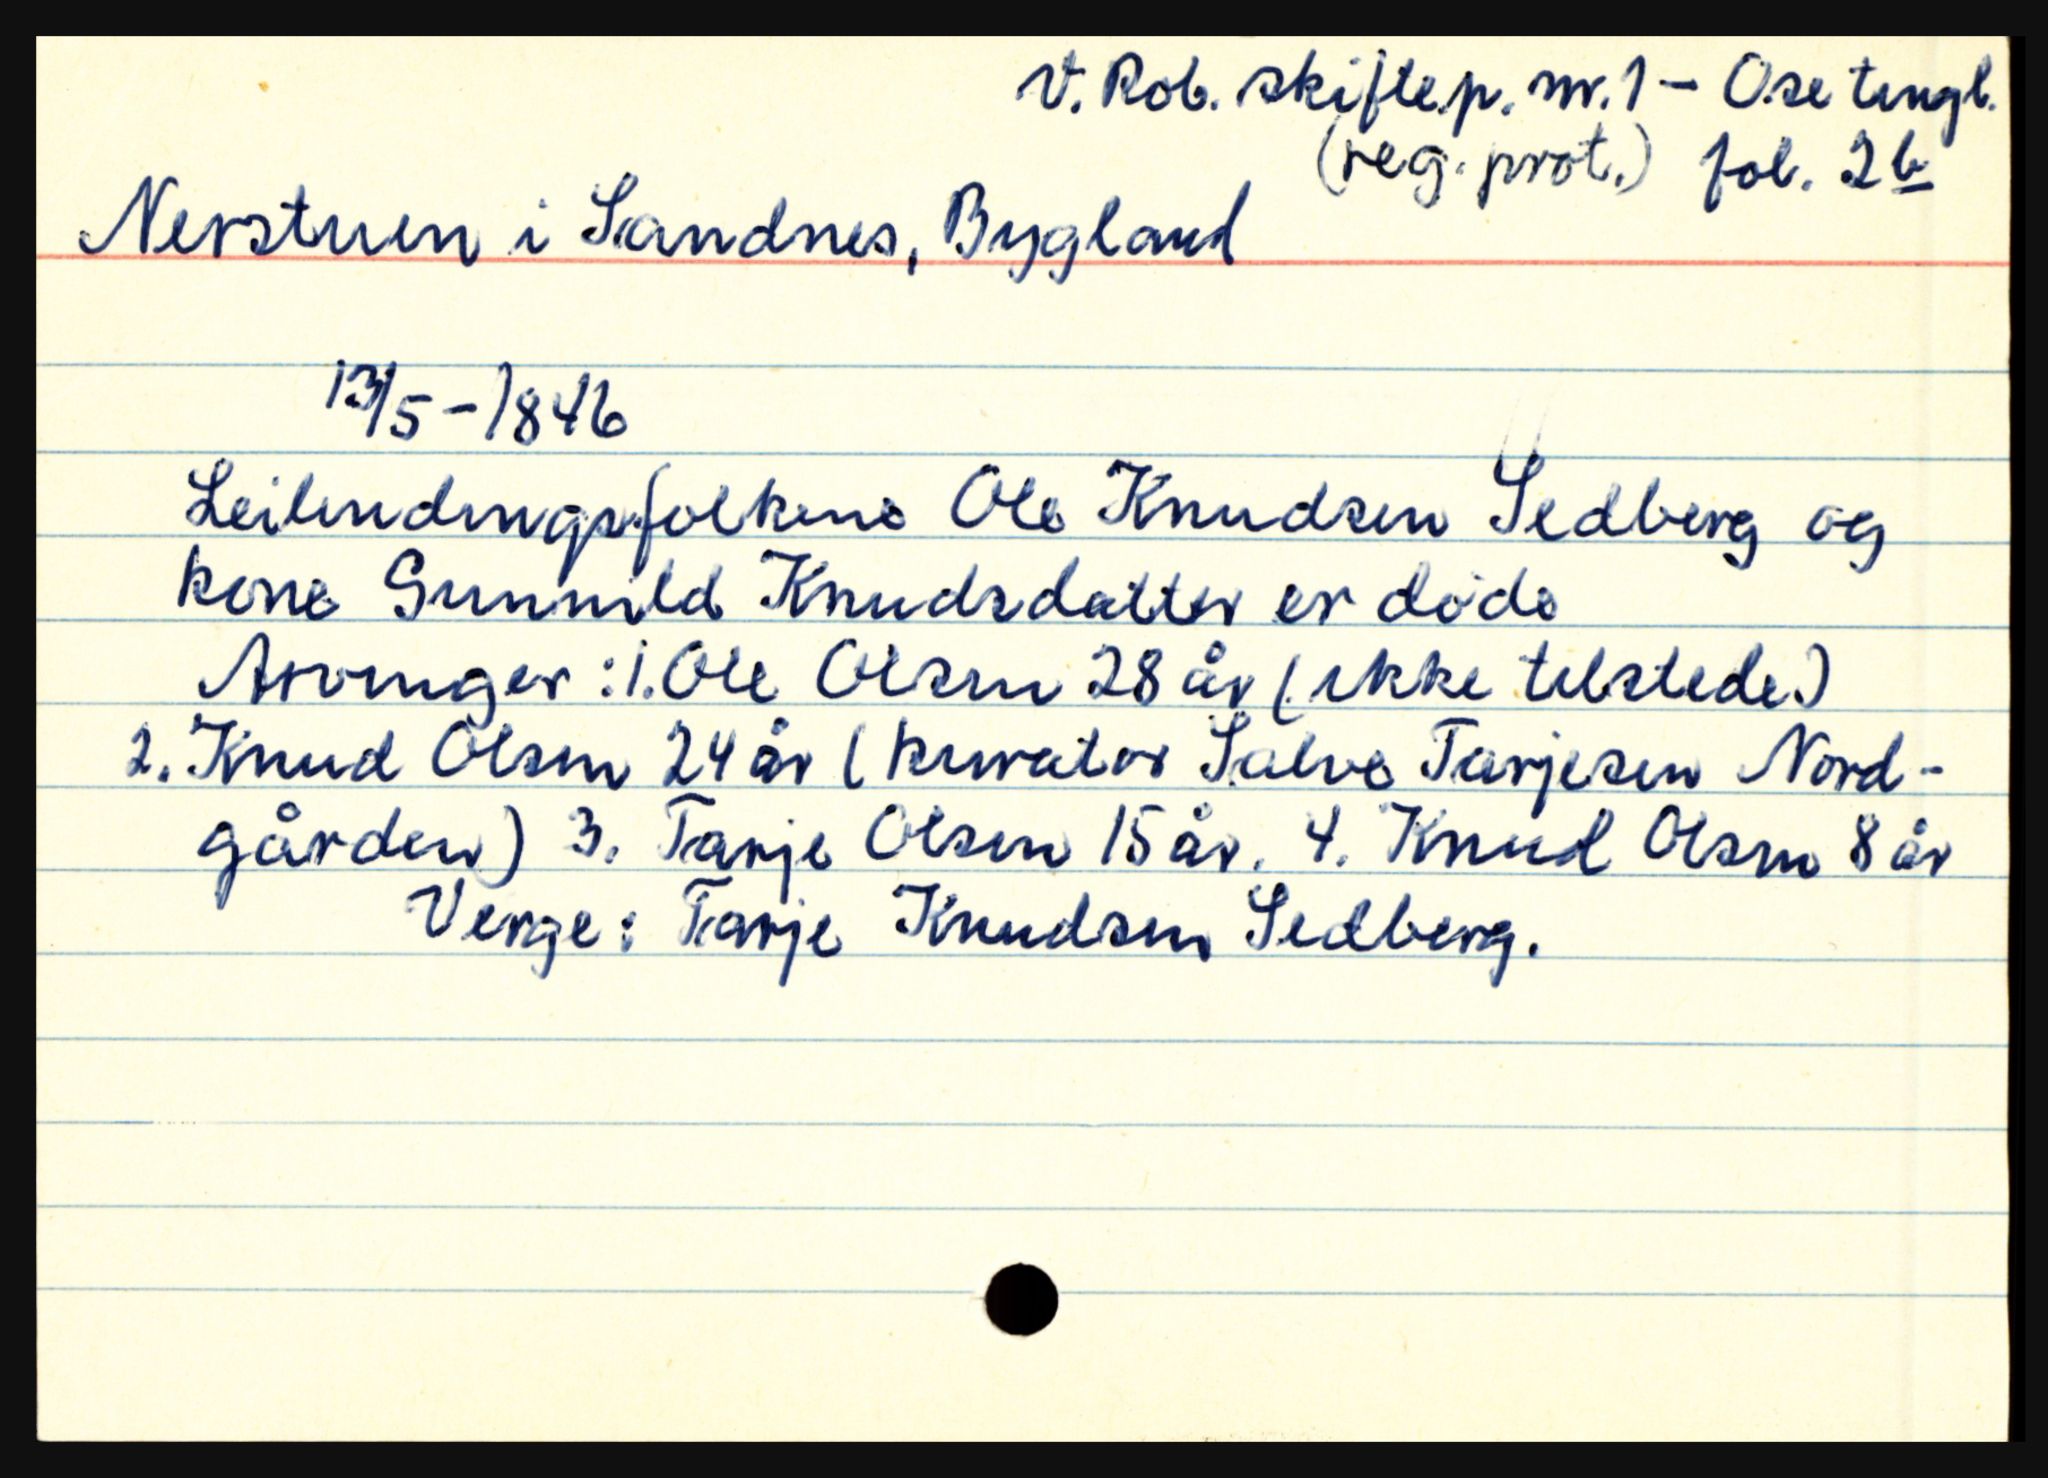 V. Rob. skiftep. nr. 1 - Ose tingl.
(reg. prot.) fol. 2b
Nerstuen i Sandnes, Bygland
13/5 - 1846
Leilendingsfolkene Ole Knudsen Sedberg og
kone Gunnild Knudsdatter er døde
Arvinger: 1. Ole Olsen 28 år (ikke tilstede)
2. Knud Olsen 24 år (kurator Salve Tarjesen Nord-
gården) 3. Tarje Olsen 15 år. 4. Knud Olsen 8 år
Verge: Tarje Knudsen Sedberg.